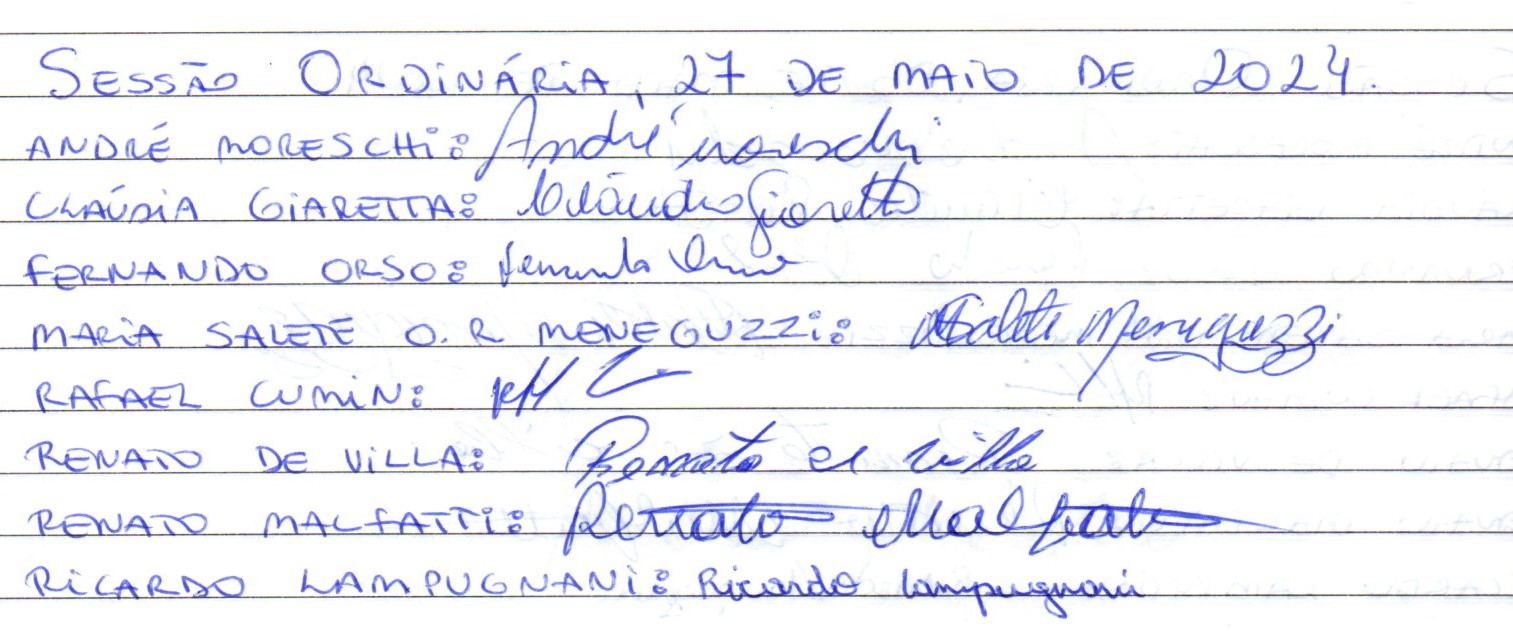 SESSÃO ORDINÁRIA, 27 DE MAIO DE 2024.
ANDRÉ MORESCHI: André Moreschi
CLAÚDIA GIARETTA: Claúdia Giaretta
FERNANDO ORSO: Fernando Orso
MARIA SALETE O. R MENEGUZZI: MSalete Meneguzzi
RAFAEL CUMIN:
RENATO DE VILLA: Renato de Villa
RENATO MALFATTI: Renato Malfatti
RICARDO LAMPUGNANI: Ricardo Lampugnani